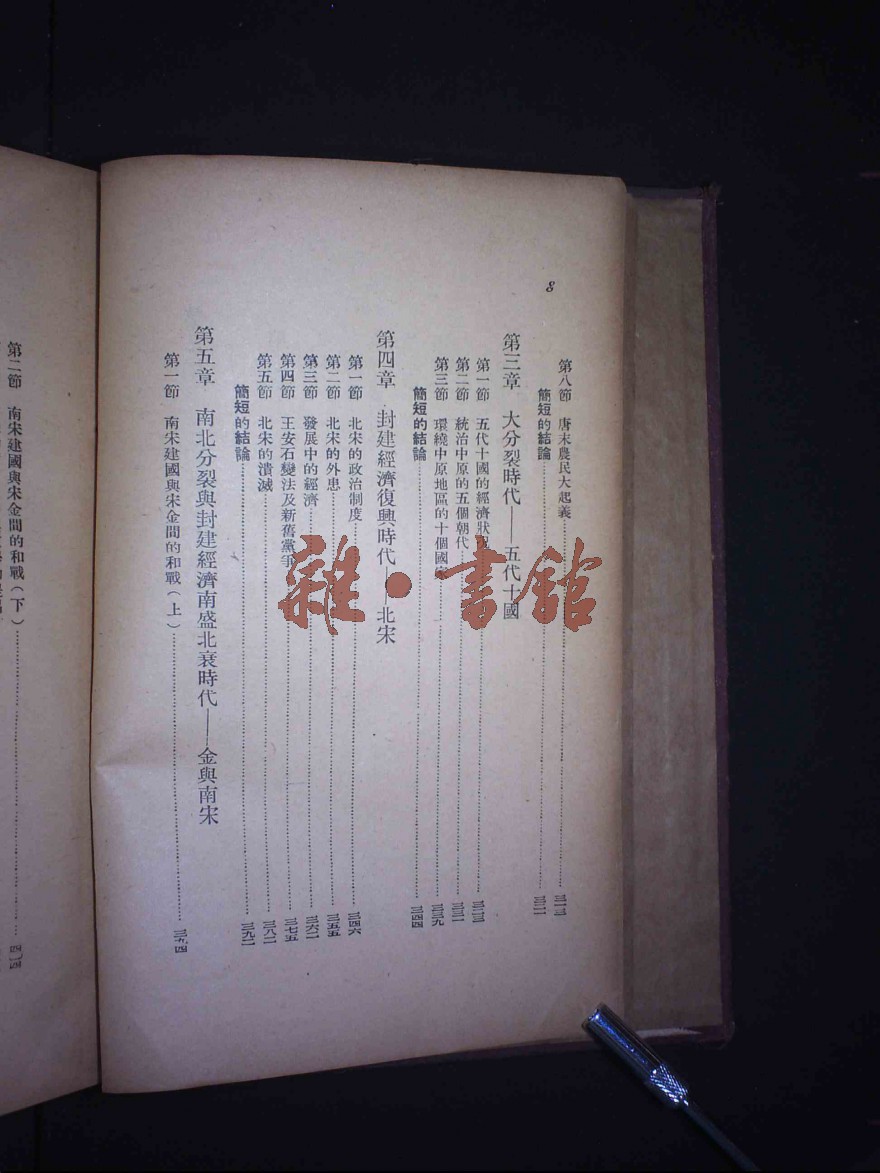 8
第八節 唐末農民大起義……三一三
簡短的結論……三二一
第三章 大分裂時代——五代十國
第一節 五代十國的經濟狀……三二三
第二節 統治中原的五個朝代……三三一
第三節 環繞中原地區的十個國……三三九
簡短的結論……三四四
第四章 封建經濟復興時代——北宋
第一節 北宋的政治制度……三四六
第二節 北宋的外患……三五五
第三節 發展中的經濟……三六二
第四節 王安石變法及新舊黨爭……三七五
第五節 北宋的潰滅……三八二
簡短的結論……三九二
第五章 南北分裂與封建經濟南盛北衰時代——金與南宋
第一節 南宋建國與宋金間的和戰(上)……三九四
第二節 南宋建國與宋金間的和戰(下)……四〇四
雜·書館